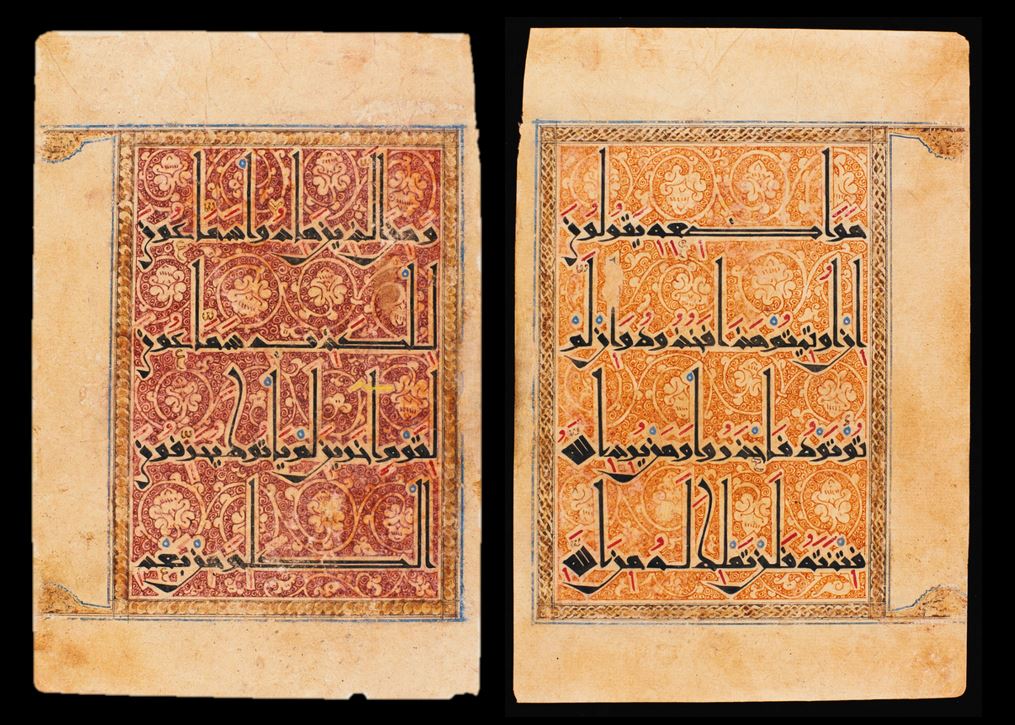 ومن الذين هادوا سماعون
للكذب سماعون
لقوم اخرين لم ياتوك يحرفون
الكلم من بعد
مواضعه يقولون
ان اوتيتم هذا فخذوه وان لم
تؤتوه فاحذروا ومن يرد الله
فتنته فلن تملك له من الله